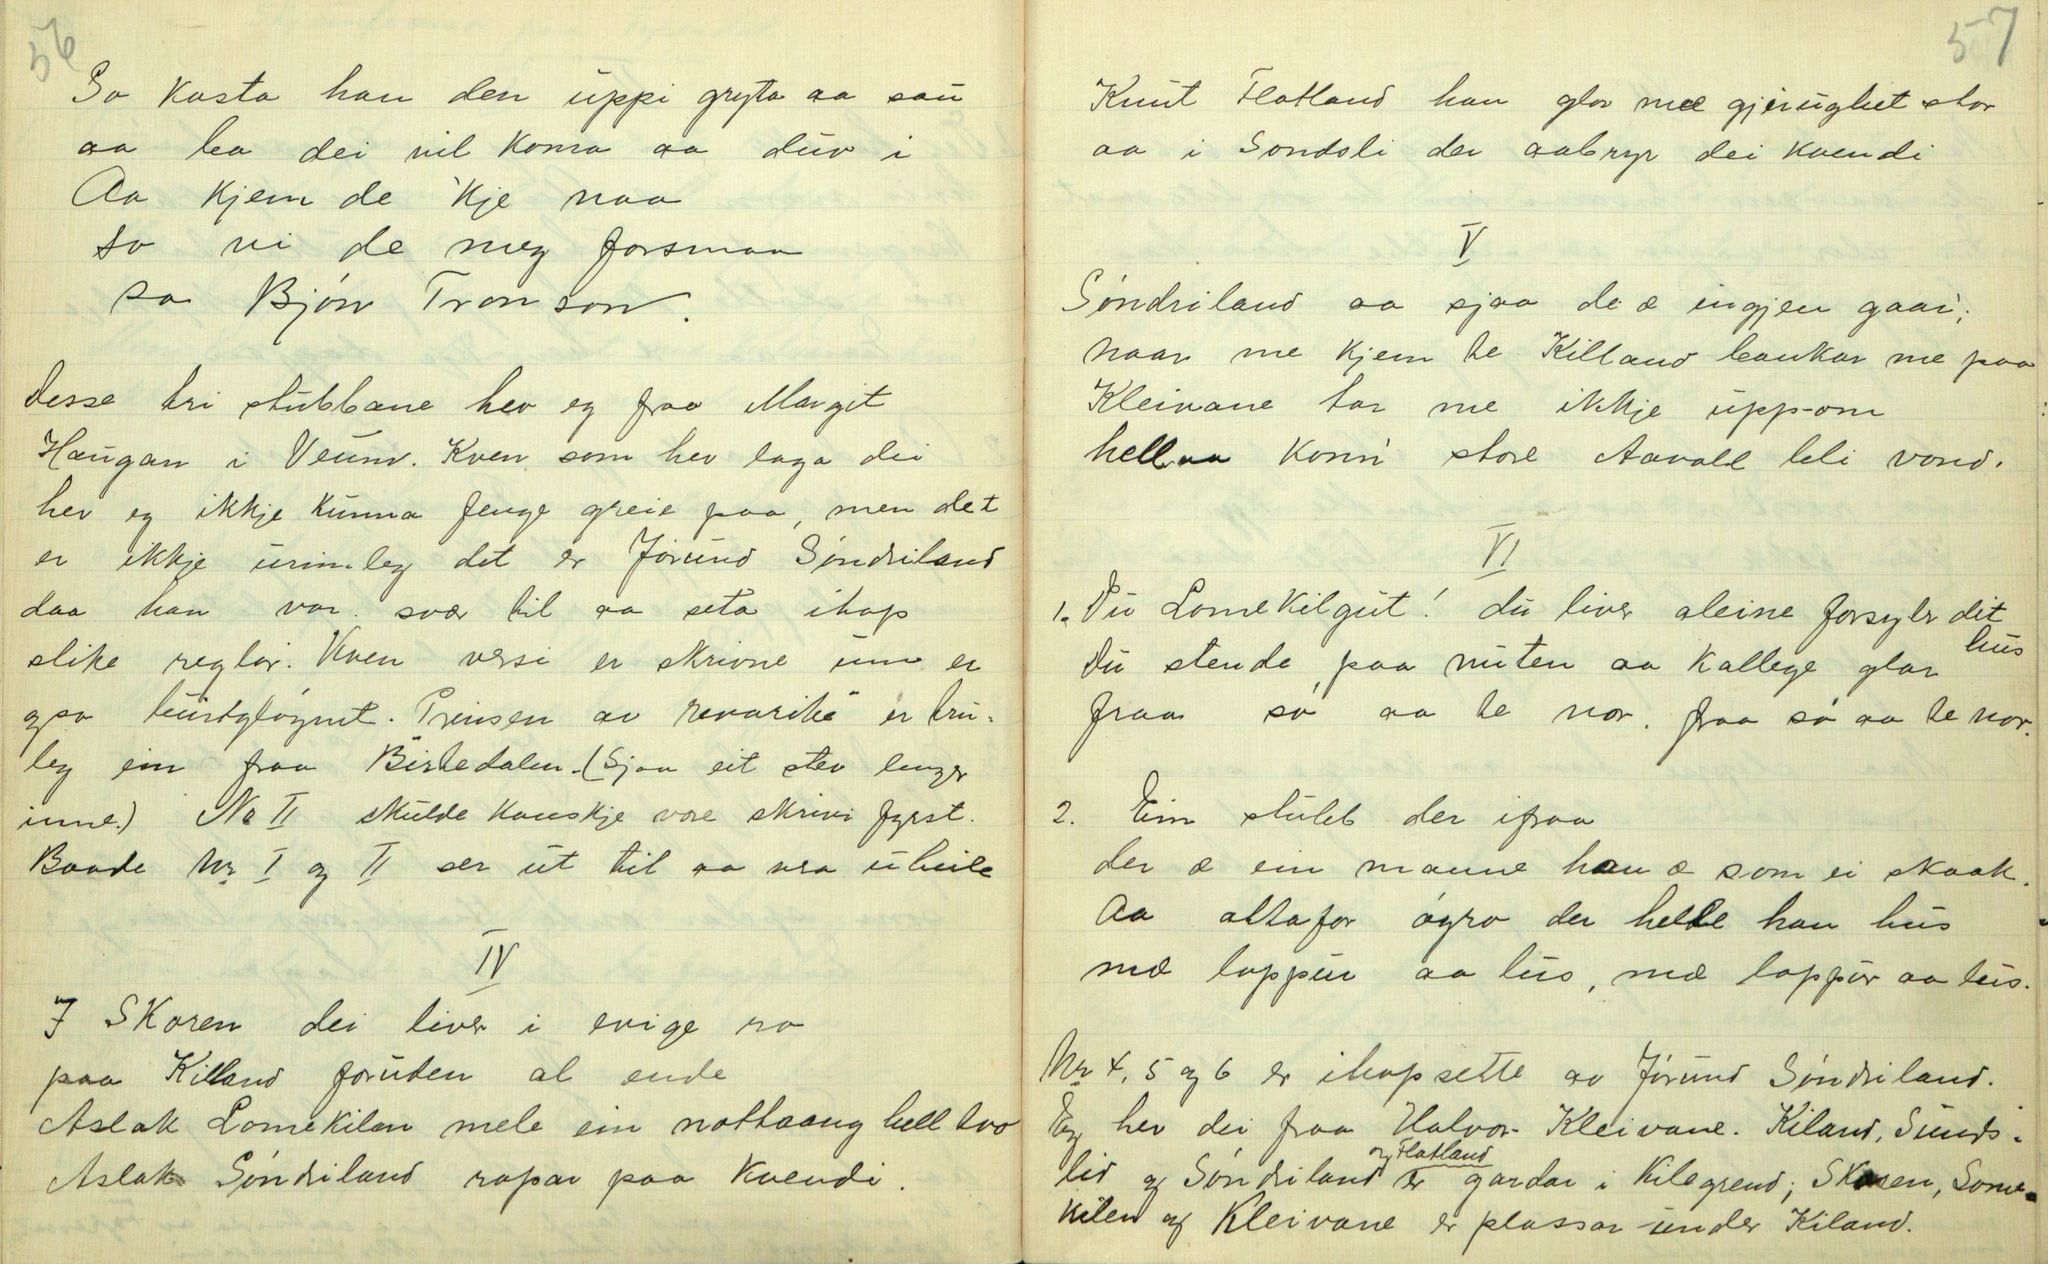 56
So kasta han den uppi gryta aa sau
aa ba dei vil koma aa duv i
Aa kjem de 'kje naa
so vi de meg forsmaa
sa Bjón Tronson.
Desse tri stubbane hev eg fraa Margit
Haugan i Veum. Kven som hev laga dei
hev eg ikkje kunna fenge greie paa, men det
er ikkje urimeleg det er Jórund Sóndriland
daa han var svær til aa seta ihop
slike reglor. Kven versi er skrivne um er
gso burtgløymt. Prinsen av revarike er tru-
leg ein fraa Bistedalen. (Sjaa eit stev lenger
inne.) No II skulde kanskje vore skrivi fyrst.
Baade Nr I og II ser ut til aa vra uheile
IV
I Skoren dei liver i evige ro
paa Killand foruden al ende
Aslak Lomekilen mele ein nottaang hell tvo
Aslak Sóndriland ropar paa Kvendi.
57
Knut Flatland han glor mæ gjerughet stor
aa i Sondsli der aabryr dei kvendi
V
Sóndriland aa sjaa de æ ingjen gaar;
naar me kjem te Killand bankar me paa
Kleivane tar me ikkje upp-om
hell aa konn' store Aavald bli vond.
VI
1. Du Lomekilgut! du liver aleine forsyler dit hus
Du stende paa nuten aa kallege glor
fraa só aa te nor. fraa só aa te nor.
2. Ein stubb der ifraa
der æ ein manne han æ som ei skaak.
Aa attafor ógro der helde han hus
mæ loppur aa lus, mæ loppur aa lus.
Nr 4, 5 og 6 er ihopsette av Jórund Sóndriland.
Eg hev dei fraa Halvor Kleivane. Kiland, Sunds-
lid og Sóndriland og Flatland er gardar i Kilegrend; Skoren, Lome-
kilen og Kleivane er plassar under Kiland.